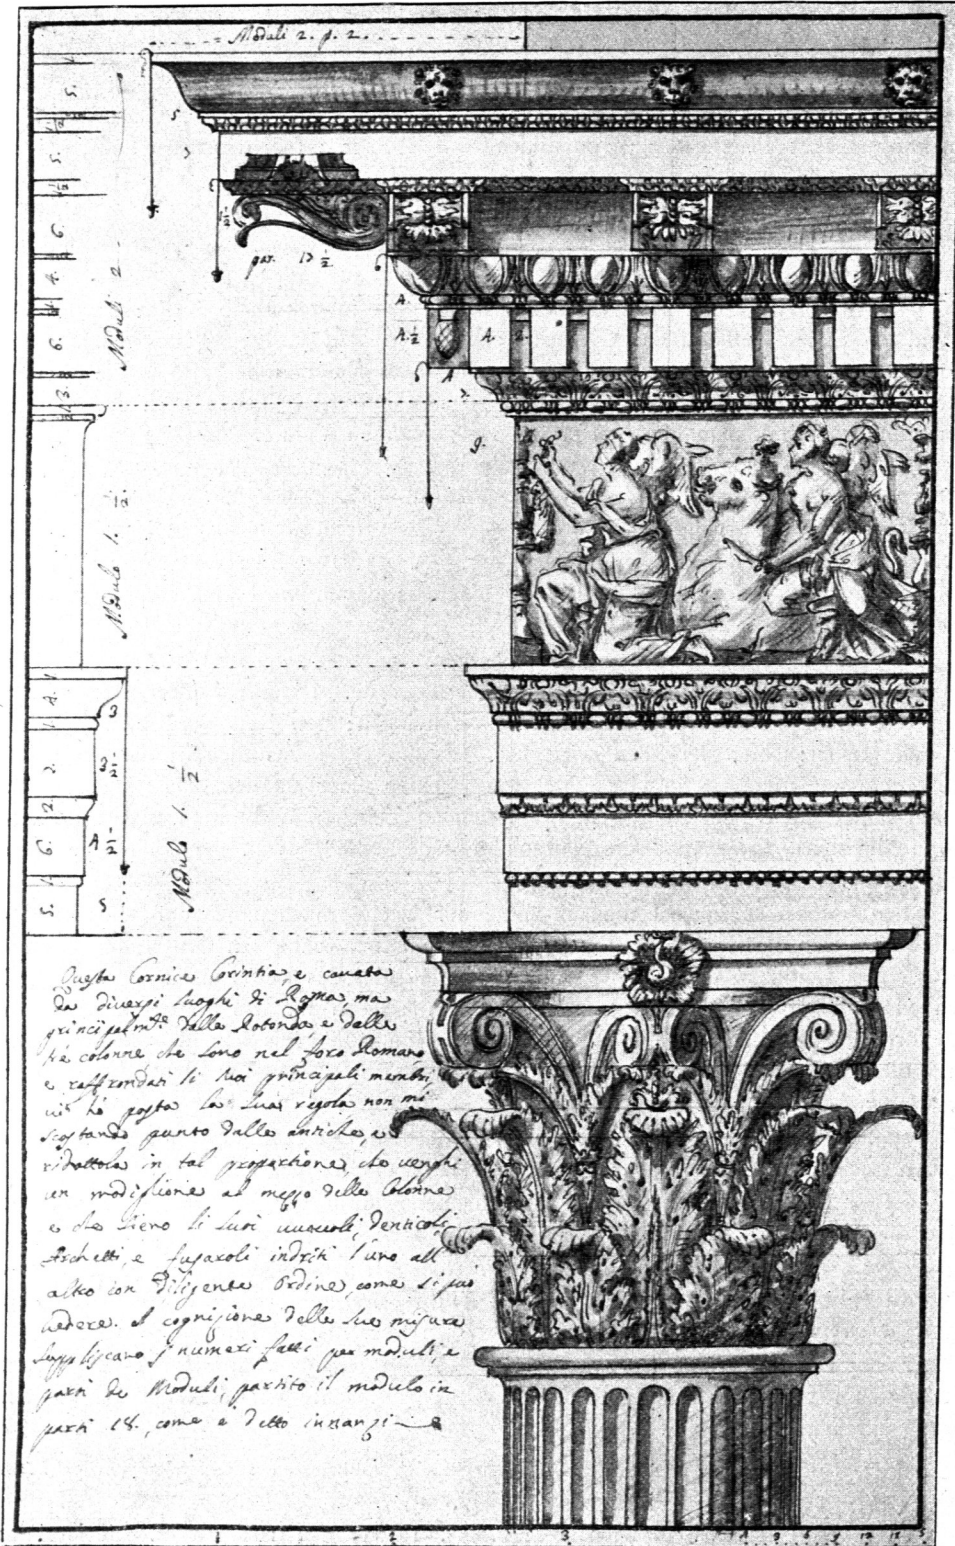 Moduli 2. p. 2.
5
5.
5.
3
6
par. 13 1/2
6
4.
4.
4. 1/2
4. 2.
6.
6
4
3.
9.
Moduli 2
Modulo 1. 1/2.
4.
3
7.
3 1/2
2.
6.
4 1/2
5.
5
Modulo 1. 1/2
Questa Cornice Corintia, e, cauata
da diversi luoghi di Roma, ma
principalmte dalla Rotonda e dalle
tre colonne che sono nel foro Romano
e raffrondati li suoi principali membri
ui hò posta la sua regola non mi
scostando punto dalle antiche, e
ridottola in tal proportione, che uenghi
un modiglione al mezzo delle Colonne
e che sieno li suoi uuouoli, denticoli,
Archetti, e fusaroli indriti l'uno all
altro con diligente Ordine, come si può
uedere. A cognizione delle sue misure
suppliscano j numeri fatti per moduli, e
parti de Moduli, partito il modulo in
parti 18. come e detto innanzi
1 2 3 6 9 12 15